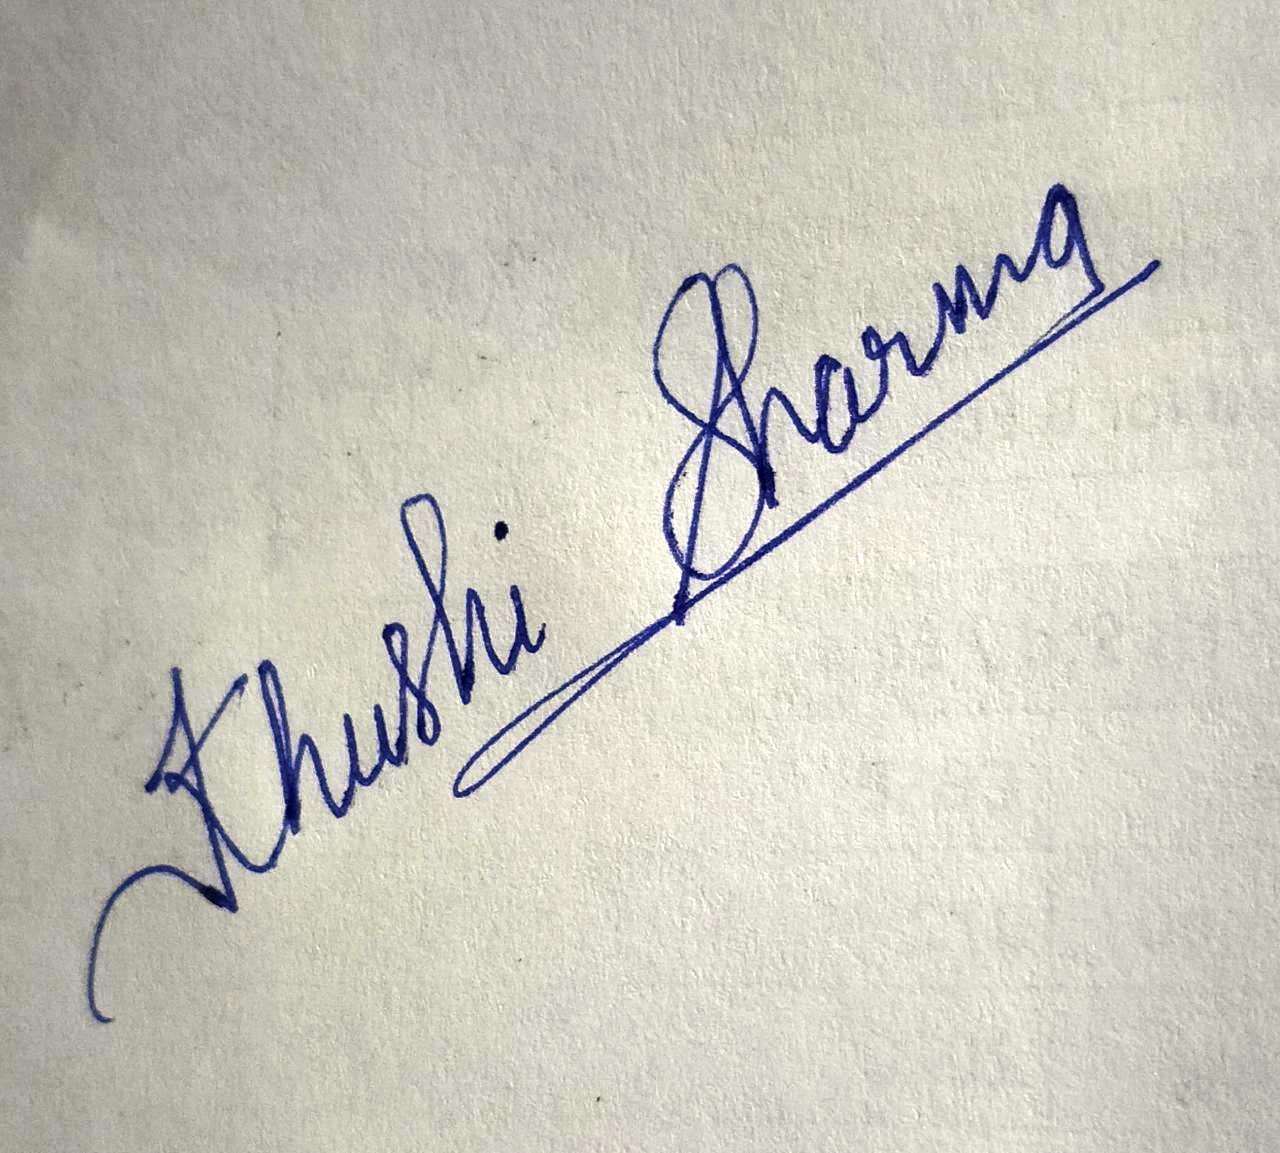 Khushi Sharma